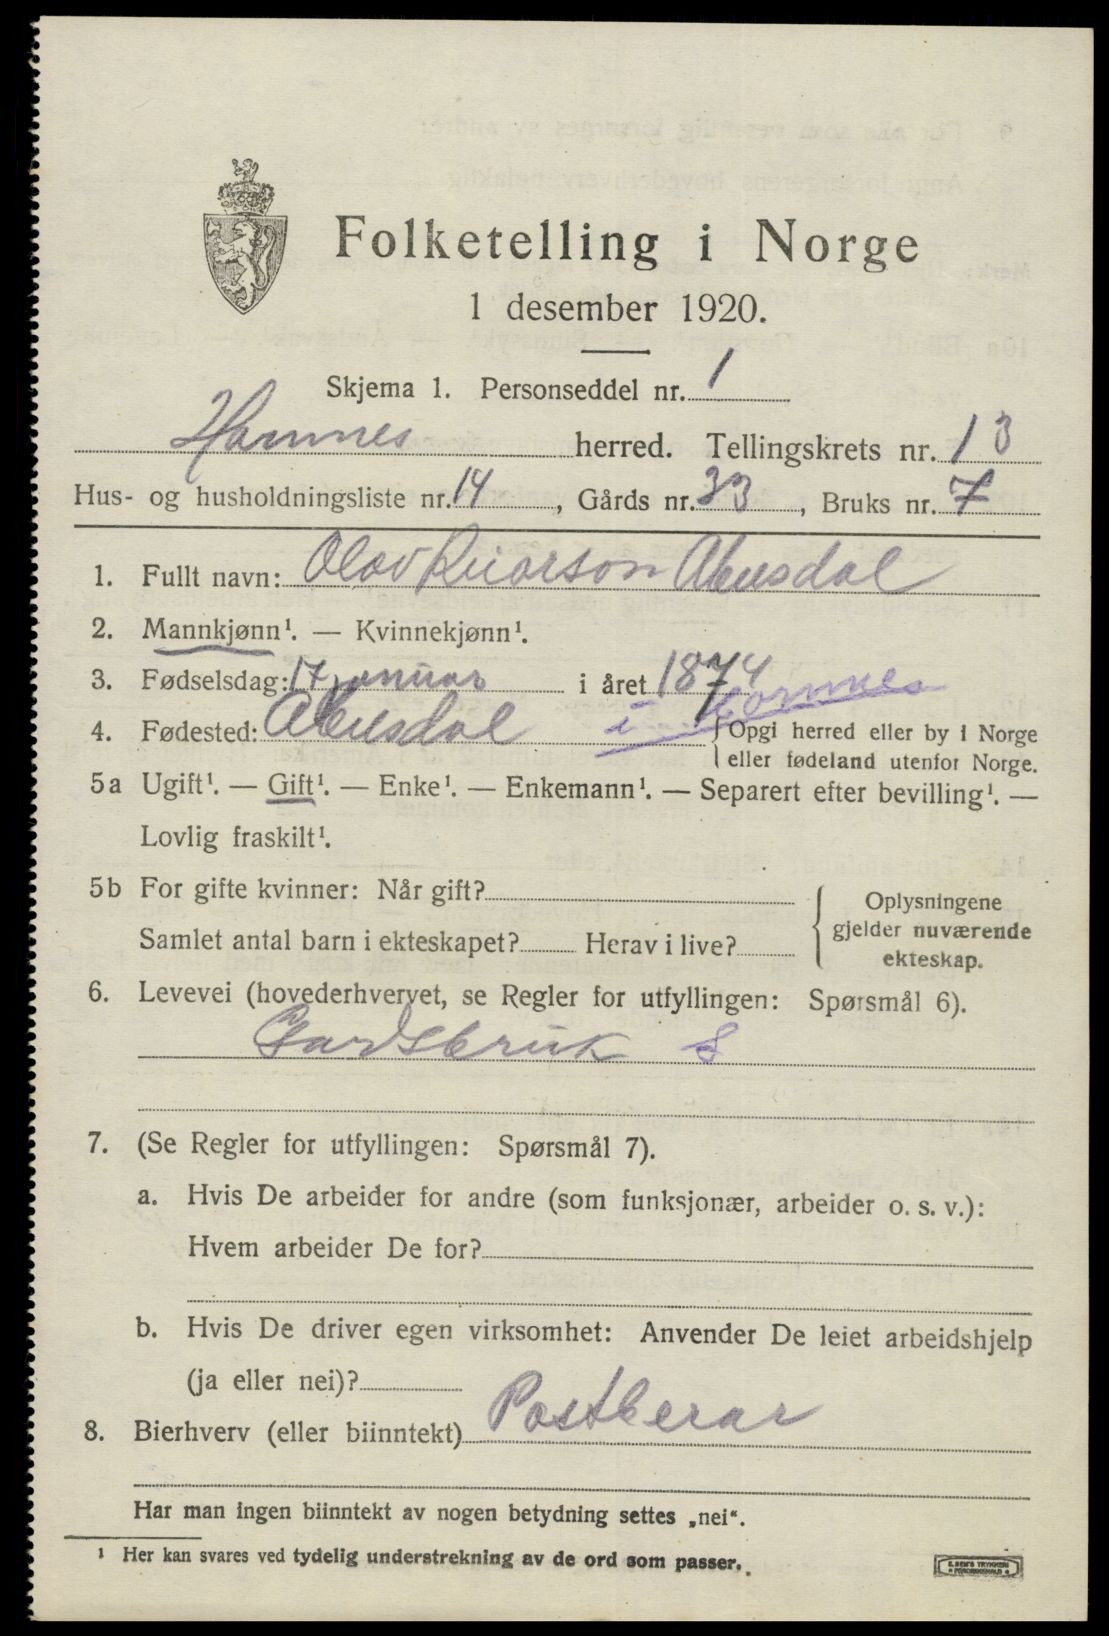 Folketelling i Norge
1 desember 1920.
Skjema 1. Personseddel nr. 1
Hornnes herred. Tellingskrets nr. 13
Hus- og husholdningsliste nr. 14, Gårds nr. 33, Bruks nr. 7
1. Fullt navn: Olav Aausdal
2. Mannkjønn¹. — Kvinnekjønn¹.
3. Fødselsdag: 17 januar i året 1874
4. Fødested: i Hornnes
{Opgi herred eller by i Norge
eller fødeland utenfor Norge.
5a Ugift¹. — Gift¹. — Enke¹. — Enkemann¹. — Separert efter bevilling¹. —
Lovlig fraskilt¹.
5b For gifte kvinner: Når gift?
Samlet antal barn i ekteskapet? Herav i live?
{ Oplysningene
gjelder nuværende
ekteskap.
6. Levevei (hovederhvervet, se Regler for utfyllingen: Spørsmål 6).
Gardsbruk S
7. (Se Regler for utfyllingen: Spørsmål 7).
a. Hvis De arbeider for andre (som funksjonær, arbeider o. s. v.):
Hvem arbeider De for?
b. Hvis De driver egen virksomhet: Anvender De leiet arbeidshjelp
(ja eller nei)?
8. Bierhverv (eller biinntekt) Postberar
Har man ingen biinntekt av nogen betydning settes „nei“.
¹ Her kan svares ved tydelig understrekning av de ord som passer.